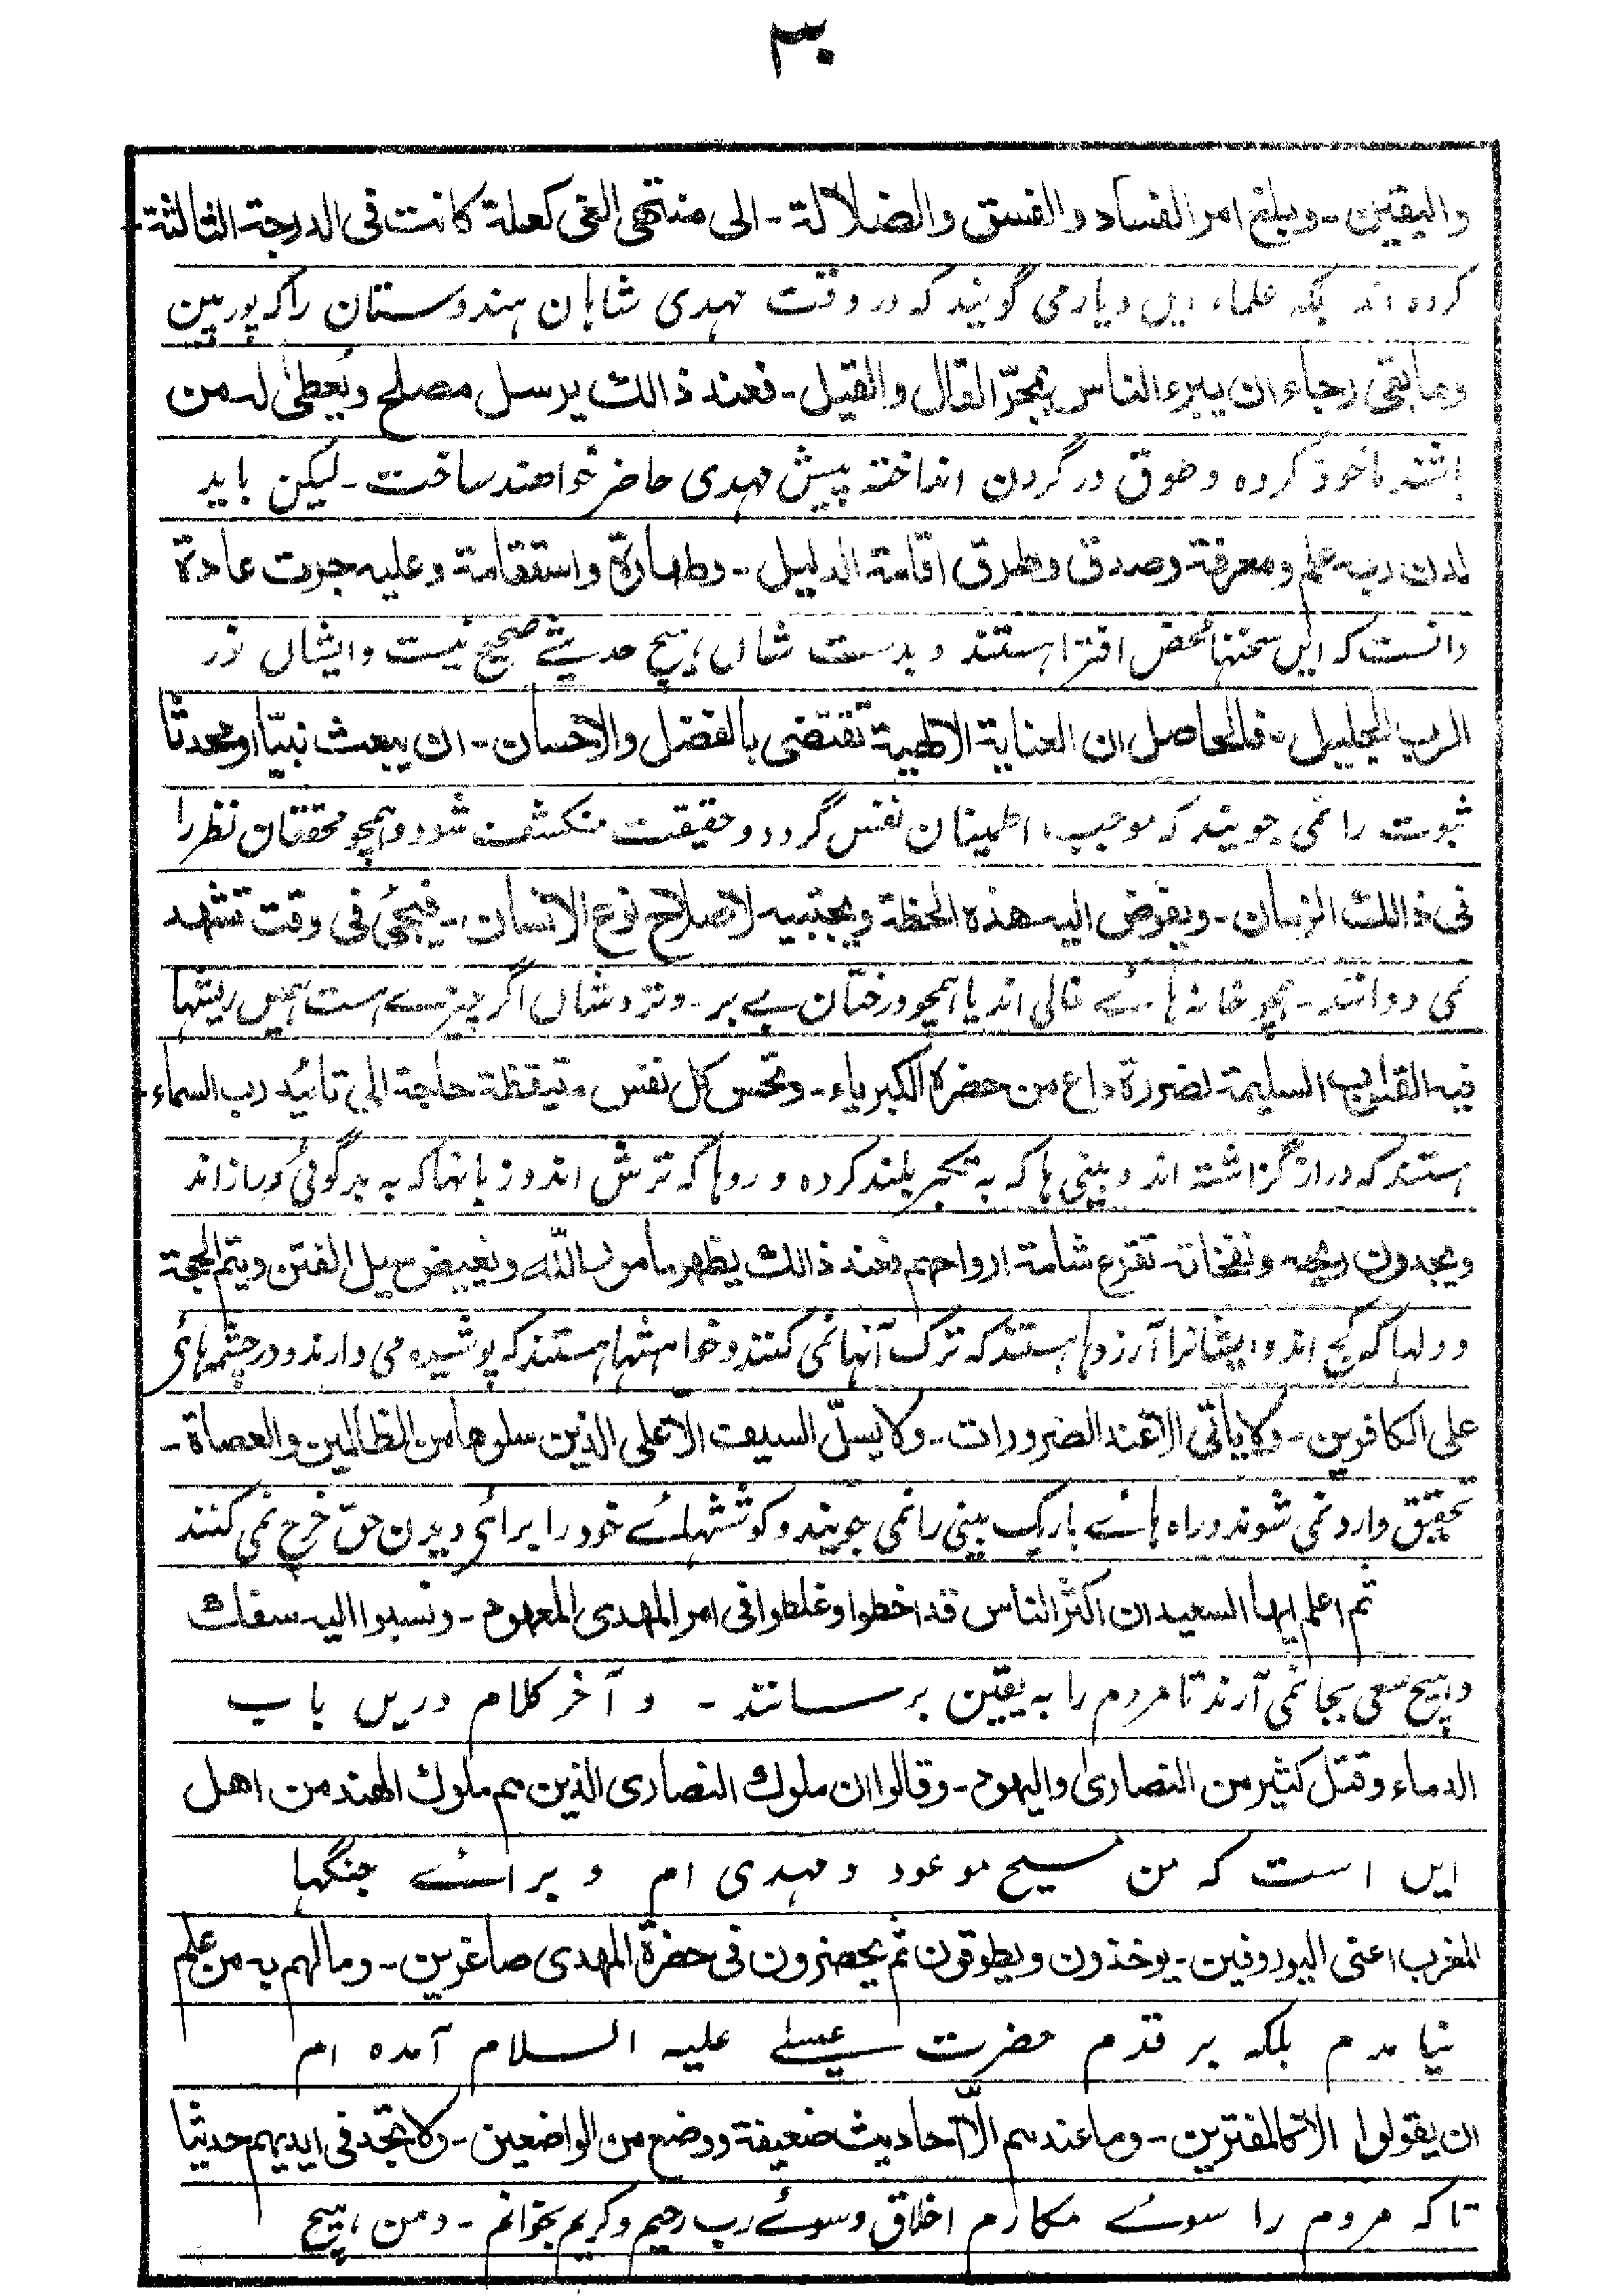 ٣٠
واليقين۔ ويبلغ امر الفساد والفسق والضلالة۔ الى منتهى الغى كعلة كانت فى الدرجة الثالثة۔
کرده اند بلکہ علماء ایں دیار می گویند کہ در وقت مہدی شاہان ہندوستان را کہ یورپین
وما بقى رجاء ان يبرء الناس بمجرّد القال والقيل۔ فعند ذالك يرسل مصلح ويُعطىٰ له من
باشند ماخوذ کرده و طوق در گردن انداختہ پیش مہدی حاضر خواهند ساخت۔ لیکن باید
لدن ربه علم ومعرفة وصدق وطرق اقامة الدليل۔ وطهارة واستقامة وعليه جرت عادة
دانست کہ ایں سخنہا محض افترا ہستند و بدست شاں ہیچ حدیثے صحیح نیست و ایشاں در
الرب الجليل۔ فالحاصل ان العناية الالٰهية تقتضى بالفضل والاحسان۔ ان يبعث نبيّا او محدثا
ثبوت را نمی جویند کہ موجب اطمینان نفس گردد و حقیقت منکشف شود و ہمچو محققان نظر را
فى ذالك الزمان۔ ويفوض اليه هذه الخطة ويجتبيه لاصلاح نوع الانسان۔ فيجئ فى وقت تشهد
نمی دوانند۔ ہمچو خانہ ہائے خالی اند یا ہمچو درختان بے بر۔ و نزدشاں اگر چیزے ہست ہمیں ریشہا
فيه القلوب السليمة لضرورة داع من حضرة الكبرياء۔ وتحس كل نفس متيقظة حاجة الى تائيد رب السماء۔
ہستند کہ دراز گزاشتہ اند و بینی ہا کہ بہ تکبر بلند کرده و روہا کہ ترش اند و زبانہا کہ بہ بدگوئی دراز اند
ويجدون ريحه ونفخاته تقرع شامة ارواحهم فعند ذالك يظهر مامور الله ويغيض سيل الفتن ويتم الحجة
و دلہا کہ کج اند و ایشانرا آرزوہا ہستند کہ ترک آنہا نمی کنند و خواہشہا ہستند کہ پوشیدہ می دارند و در چشمہ ہائی
على الكافرين۔ ولا ياتى الا عند الضرورات۔ ولا يسلّ السيف الّا على الذين سلوها من الظالمين والعصاة۔
تحقیق وارد نمی شوند و راہ ہائے باریک بینی را نمی جویند و کوششہائے خود را برائی دیدن حق خرج نمی کنند
ثم اعلم ايها السعيد ان اكثر الناس قد اخطوا وغلطوا فى امر المهدى المعهود۔ ونسبوا اليه سفك
و ہیچ سعی بجا نمی آرند تا مردم را بہ یقین برسانند ۔ و آخر کلام دریں باب
الدماء وقتل كثير من النصارىٰ واليهود۔ وقالوا ان ملوك النصارى الذين هم ملوك الهند من اهل
ایں است کہ من مسیح موعود و مہدی ام و برائے جنگہا
المغرب اعنى اليوروفين۔ يوخذون ويطوقون ثم يحضرون فى حضرة المهدى صاغرين۔ وما لهم به من علم
نیامدم بلکہ بر قدم حضرت عیسیٰ علیہ السلام آمدہ ام
ان يقولوا الا كالمفترين۔ وما عندهم الّا احاديث ضعيفة ووضع من الواضعين۔ ولا تجد فى ايديهم حديثا
تاکہ مردم را سوئے مکارم اخلاق و سوئے رب رحیم و کریم بخوانم۔ و من ہیچ